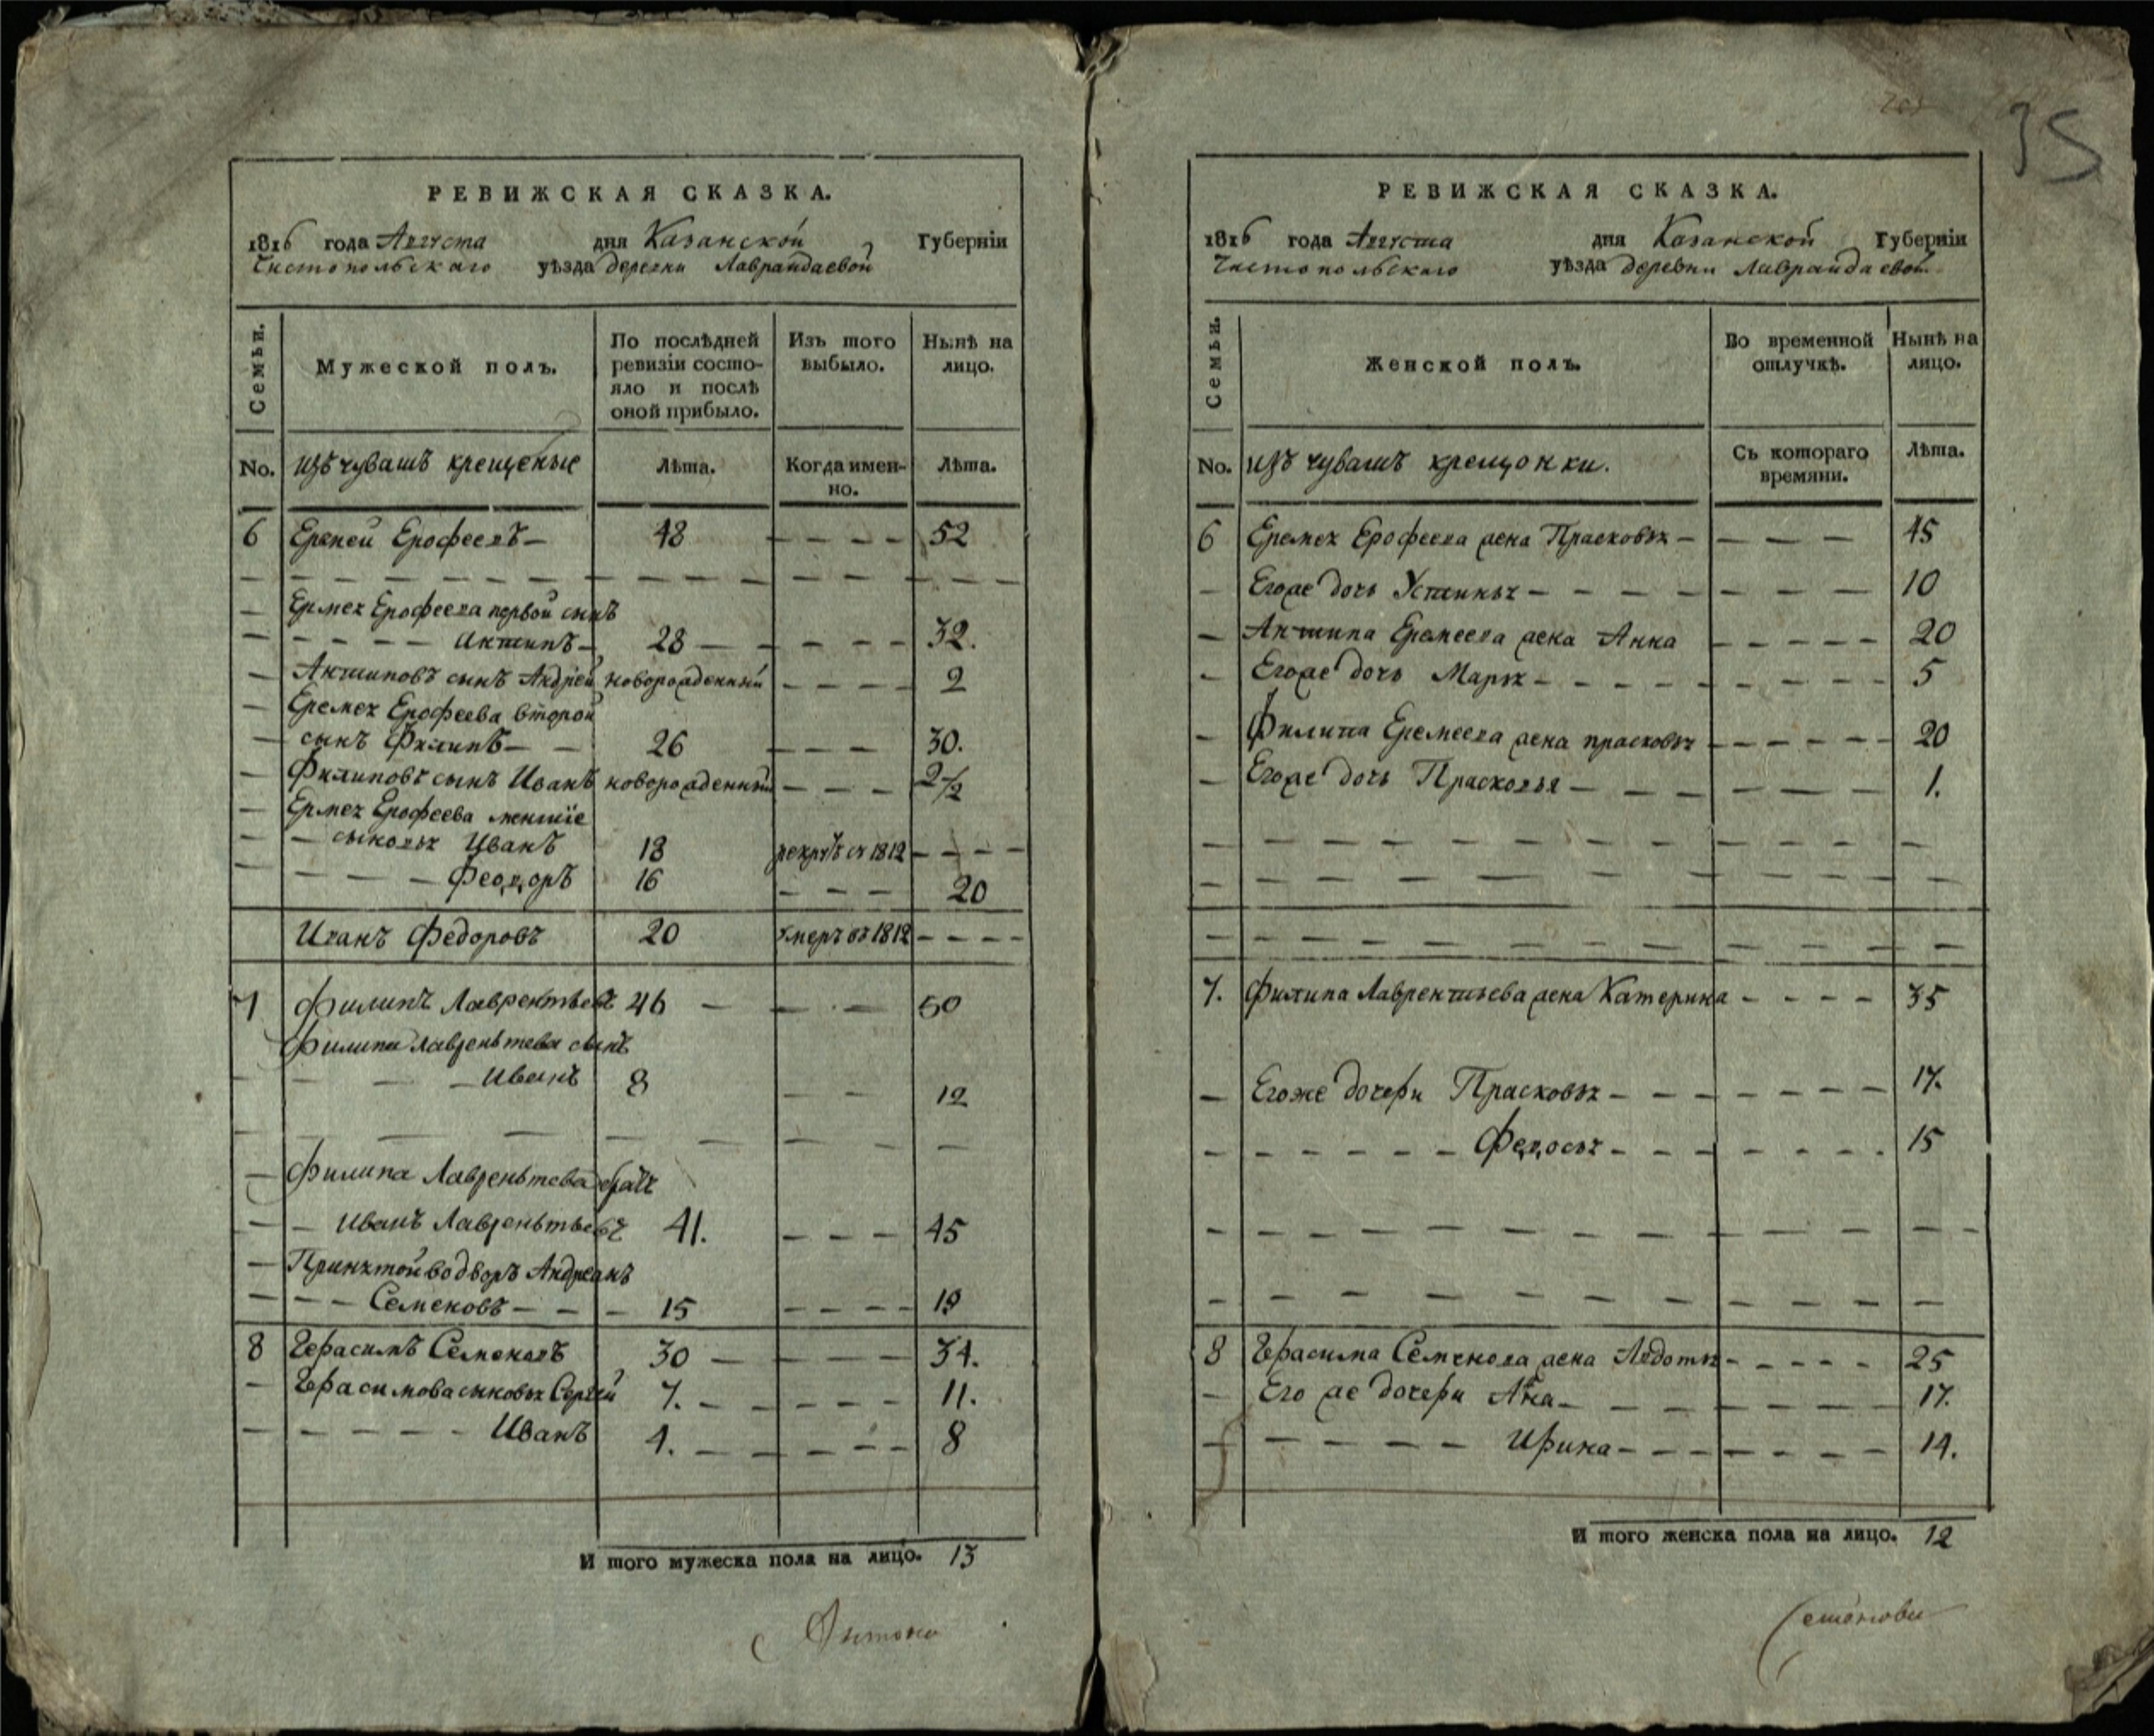 35
РЕВИЖСКАЯ СКАЗКА.
1816 года Августа дня Казанской Губерніи
Чистопольскаго уѣзда деревни Лаврандаевой
Семьи.
Мужеской полъ.
По послѣдней ревизіи состояло и послѣ оной прибыло.
Изъ того выбыло.
Нынѣ на лицо.
No. изъ чувашъ крещеные Лѣта. Когда именно. Лѣта.
6 Еремей Ерофеевъ 48 52
Ермея Ерофеева первой сынъ
Антипъ 28 32.
Антиповъ сынъ Андрей новорожденный 2
Еремея Ерофеева второй
сынъ Филипъ 26 30.
Филиповъ сынъ Иванъ новорожденный 2 1/2
Ермея Ерофеева меншіе
сыновья Иванъ 18 рекрутъ съ 1812
Феодоръ 16 20
Иванъ Федоровъ 20 умеръ въ 1812
7 Филипъ Лаврентьевъ 46 50
Филипа Лавреньтева сынъ
Иванъ 8 12
Филипа Лавреньтева братъ
Иванъ Лавреньтьевъ 41. 45
Принятой во дворъ Андреанъ
Семеновъ 15 19
8 Герасимъ Семеновъ 30 34.
Герасимова сыновья Сергей 7. 11.
Иванъ 4. 8
И того мужеска пола на лицо. 13
РЕВИЖСКАЯ СКАЗКА.
1816 года Августа дня Казанской Губерніи
Чистопольскаго уѣзда деревни Лаврандаевой
Семьи.
Женской полъ.
Во временной отлучкѣ.
Нынѣ на лицо.
No. изъ чувашъ крещонки. Съ котораго времяни. Лѣта.
6 Еремея Ерофеева жена Прасковья 45
Егоже дочь Устинья 10
Антипа Еремеева жена Анна 20
Егоже дочь Марья 5
Филипа Еремеева жена прасковья 20
Егоже дочь Прасковья 1.
7. Филипа Лаврентьева жена Катерина 35
Егоже дочери Прасковья 17.
Федосья 15
8 Герасима Семенова жена Авдотья 25
Его же дочери Анна 17.
Ирина 14.
И того женска пола на лицо. 12